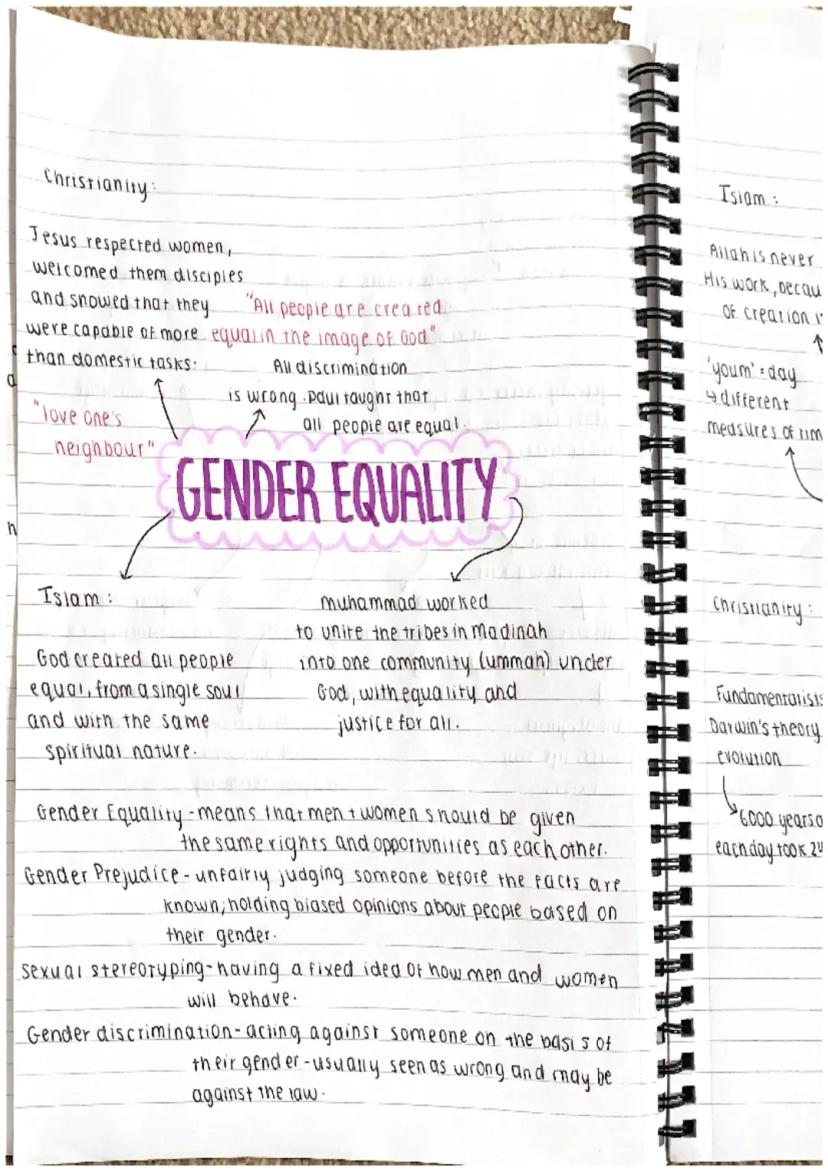 Christianity:
Jesus respected women,
welcomed them disciples
and showed that they
were capable of more
than domestic tasks.
"All people are created
equal in the image of God"
All discrimination
is wrong. Paul taught that
all people are equal.
"love one's
neighbour"
GENDER EQUALITY
Islam:
God created all people
equal, from a single soul
and with the same
spiritual nature.
Muhammad worked
to unite the tribes in Madinah
into one community (ummah) under
God, with equality and
justice for all.
Gender Equality - means that men + women should be given
the same rights and opportunities as each other.
Gender Prejudice - unfairly judging someone before the facts are
known; holding biased opinions about people based on
their gender.
Sexual stereotyping - having a fixed idea of how men and women
will behave.
Gender discrimination - acting against someone on the basis of
their gender - usually seen as wrong and may be
against the law.
Islam:
Allah is never
His work, becau
of creation i
'youm' = day
↳ different
measures of tim
Christianity:
Fundamentalists
Darwin's theory
evolution
6000 years o
each day took 24